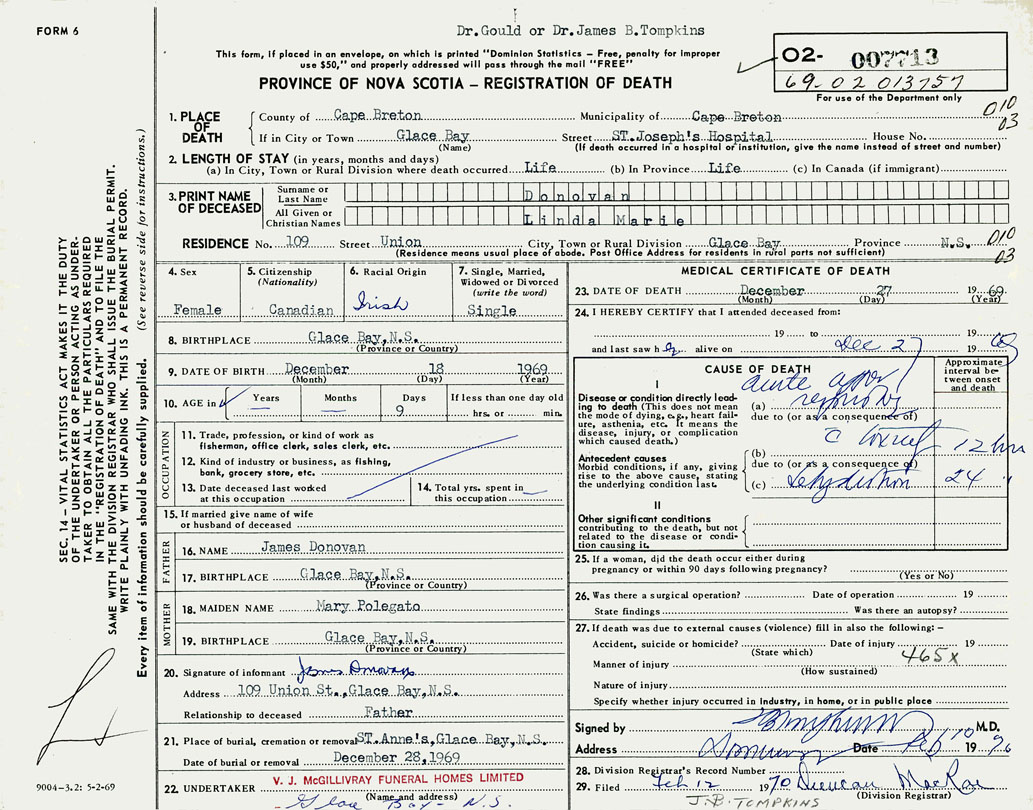 FORM 6
Dr.Gould or Dr.James B.Tompkins
This form, if placed in an envelope, on which is printed "Dominion Statistics – Free, penalty for improper
use $50," and properly addressed will pass through the mail "FREE"
PROVINCE OF NOVA SCOTIA – REGISTRATION OF DEATH
O2- 007713
69-02 013757
For use of the Department only
010
03
1. PLACE OF DEATH
County of Cape Breton Municipality of Cape Breton
If in City or Town Glace Bay Street ST.Joseph's Hospital House No.
(Name) (If death occurred in a hospital or institution, give the name instead of street and number)
2. LENGTH OF STAY (in years, months and days)
(a) In City, Town or Rural Division where death occurred Life (b) In Province Life (c) In Canada (if immigrant)
3. PRINT NAME OF DECEASED
Surname or Last Name Donovan
All Given or Christian Names Linda Marie
RESIDENCE No. 109 Street Union City, Town or Rural Division Glace Bay Province N.S. 010
(Residence means usual place of abode. Post Office Address for residents in rural parts not sufficient) 03
4. Sex
Female
5. Citizenship
(Nationality)
Canadian
6. Racial Origin
Irish
7. Single, Married,
Widowed or Divorced
(write the word)
Single
8. BIRTHPLACE Glace Bay,N.S.
(Province or Country)
9. DATE OF BIRTH December 18 1969
(Month) (Day) (Year)
10. AGE in Years Months Days If less than one day old
9 hrs. or min.
OCCUPATION
11. Trade, profession, or kind of work as
fisherman, office clerk, sales clerk, etc.
12. Kind of industry or business, as fishing,
bank, grocery store, etc.
13. Date deceased last worked
at this occupation
14. Total yrs. spent in
this occupation
15. If married give name of wife
or husband of deceased
FATHER
16. NAME James Donovan
17. BIRTHPLACE Glace Bay,N.S.
(Province or Country)
MOTHER
18. MAIDEN NAME Mary Polegato
19. BIRTHPLACE Glace Bay,N.S.
(Province or Country)
20. Signature of informant James Donovan
Address 109 Union St.,Glace Bay,N.S.
Relationship to deceased Father
21. Place of burial, cremation or removal ST.Anne's,Glace Bay,N.S.
Date of burial or removal December 28,1969
22. UNDERTAKER V. J. McGILLIVRAY FUNERAL HOMES LIMITED
(Name and address)
Glace Bay - N.S.
MEDICAL CERTIFICATE OF DEATH
23. DATE OF DEATH December 27 1969
(Month) (Day) (Year)
24. I HEREBY CERTIFY that I attended deceased from:
19 to 19
and last saw h alive on Dec 27 19 69
CAUSE OF DEATH
Approximate
interval be-
tween onset
and death
I
Disease or condition directly lead-
ing to death (This does not mean
the mode of dying, e.g., heart fail-
ure, asthenia, etc. It means the
disease, injury, or complication
which caused death.)
acute upper
(a) respiratory
due to (or as a consequence of)
Antecedent causes
Morbid conditions, if any, giving
rise to the above cause, stating
the underlying condition last.
(b) 12 hrs
due to (or as a consequence of)
(c) dehydration 24
II
Other significant conditions
contributing to the death, but not
related to the disease or condi-
tion causing it.
25. If a woman, did the death occur either during
pregnancy or within 90 days following pregnancy?
(Yes or No)
26. Was there a surgical operation? Date of operation 19
State findings Was there an autopsy?
27. If death was due to external causes (violence) fill in also the following: –
Accident, suicide or homicide? Date of injury 19
(State which) 465x
Manner of injury
(How sustained)
Nature of injury
Specify whether injury occurred in Industry, in home, or in public place
Signed by M.D.
Address Dominion Date Feb 10 19 70
28. Division Registrar's Record Number
29. Filed Feb 12 1970 Duncan MacRae
(Division Registrar)
J.B. TOMPKINS
SEC. 14 – VITAL STATISTICS ACT MAKES IT THE DUTY
OF THE UNDERTAKER OR PERSON ACTING AS UNDER-
TAKER TO OBTAIN ALL THE PARTICULARS REQUIRED
IN THE "REGISTRATION OF DEATH" AND TO FILE THE
SAME WITH THE DIVISION REGISTRAR WHO SHALL ISSUE THE BURIAL PERMIT.
WRITE PLAINLY WITH UNFADING INK. THIS IS A PERMANENT RECORD.
Every item of information should be carefully supplied. (See reverse side for instructions.)
9004–3.2: 5-2-69